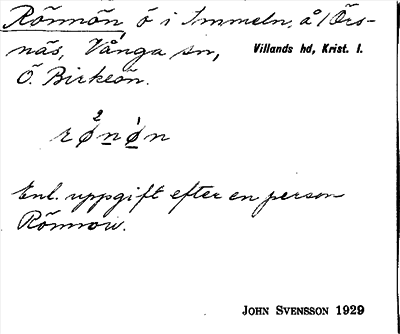 Rönnön ö i Immeln, å 1 Örs-
näs, Vånga sn, Villands hd, Krist. l.
Ö. Birkeön.
rønøn
Enl. uppgift efter en person
Rönnow.
JOHN SVENSSON 1929